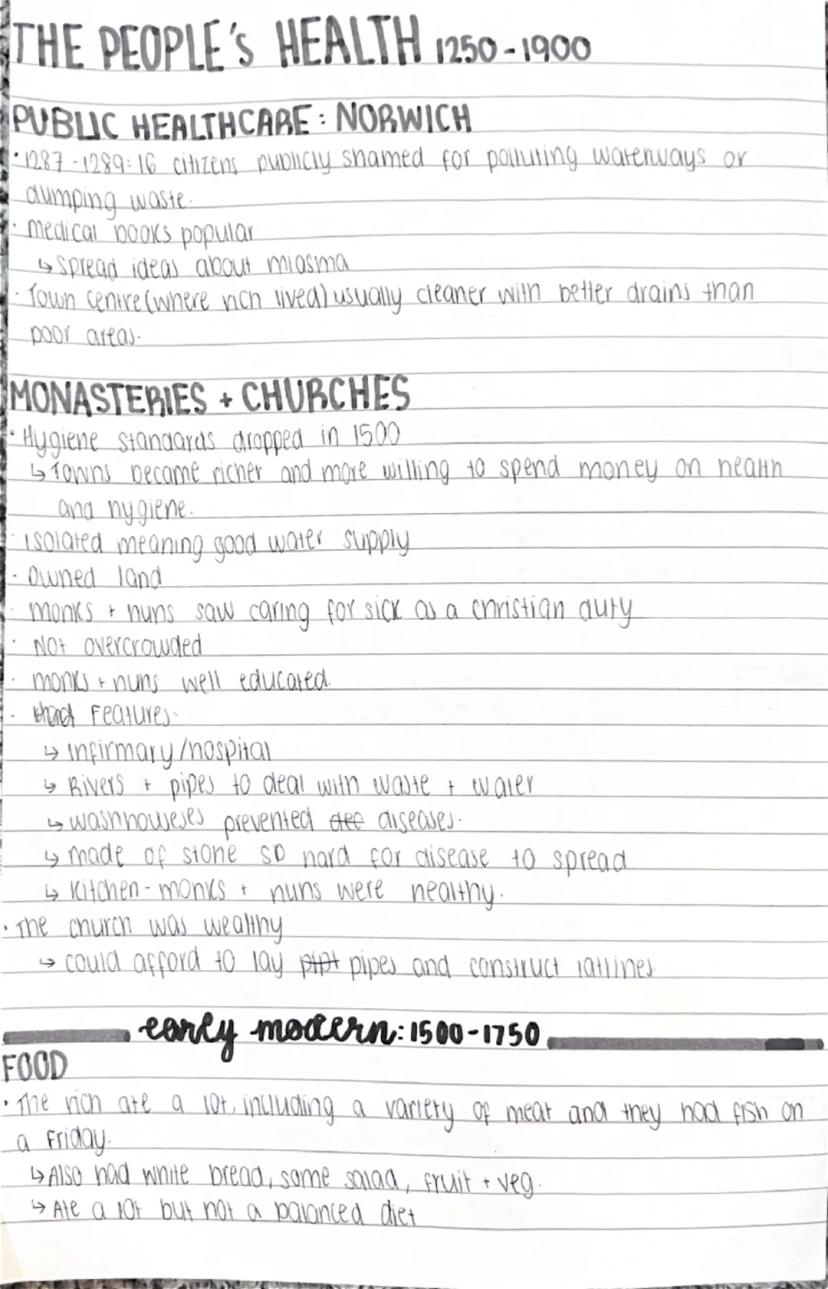 THE PEOPLE'S HEALTH 1250-1900
PUBLIC HEALTHCARE: NORWICH
· 1287-1289: 16 citizens publicly shamed for polluting waterways or
dumping waste.
· Medical books popular
↳ Spread ideas about miasma
· Town centre (where rich lived) usually cleaner with better drains than
poor areas.
MONASTERIES + CHURCHES
· Hygiene standards dropped in 1500
↳ Towns became richer and more willing to spend money on health
and hygiene.
· Isolated meaning good water supply
· Owned land
· Monks + nuns saw caring for sick as a christian duty
· Not overcrowded
· Monks + nuns well educated.
· Features:
↳ Infirmary/hospital
↳ Rivers + pipes to deal with waste + water
↳ Washhouses prevented diseases.
↳ Made of stone so hard for disease to spread
↳ Kitchen - monks + nuns were healthy.
· The church was wealthy
↳ Could afford to lay pipes and construct latrines.
early modern: 1500-1750
FOOD
· The rich ate a lot, including a variety of meat and they had fish on
a Friday.
↳ Also had white bread, some salad, fruit + veg.
↳ Ate a lot but not a balanced diet